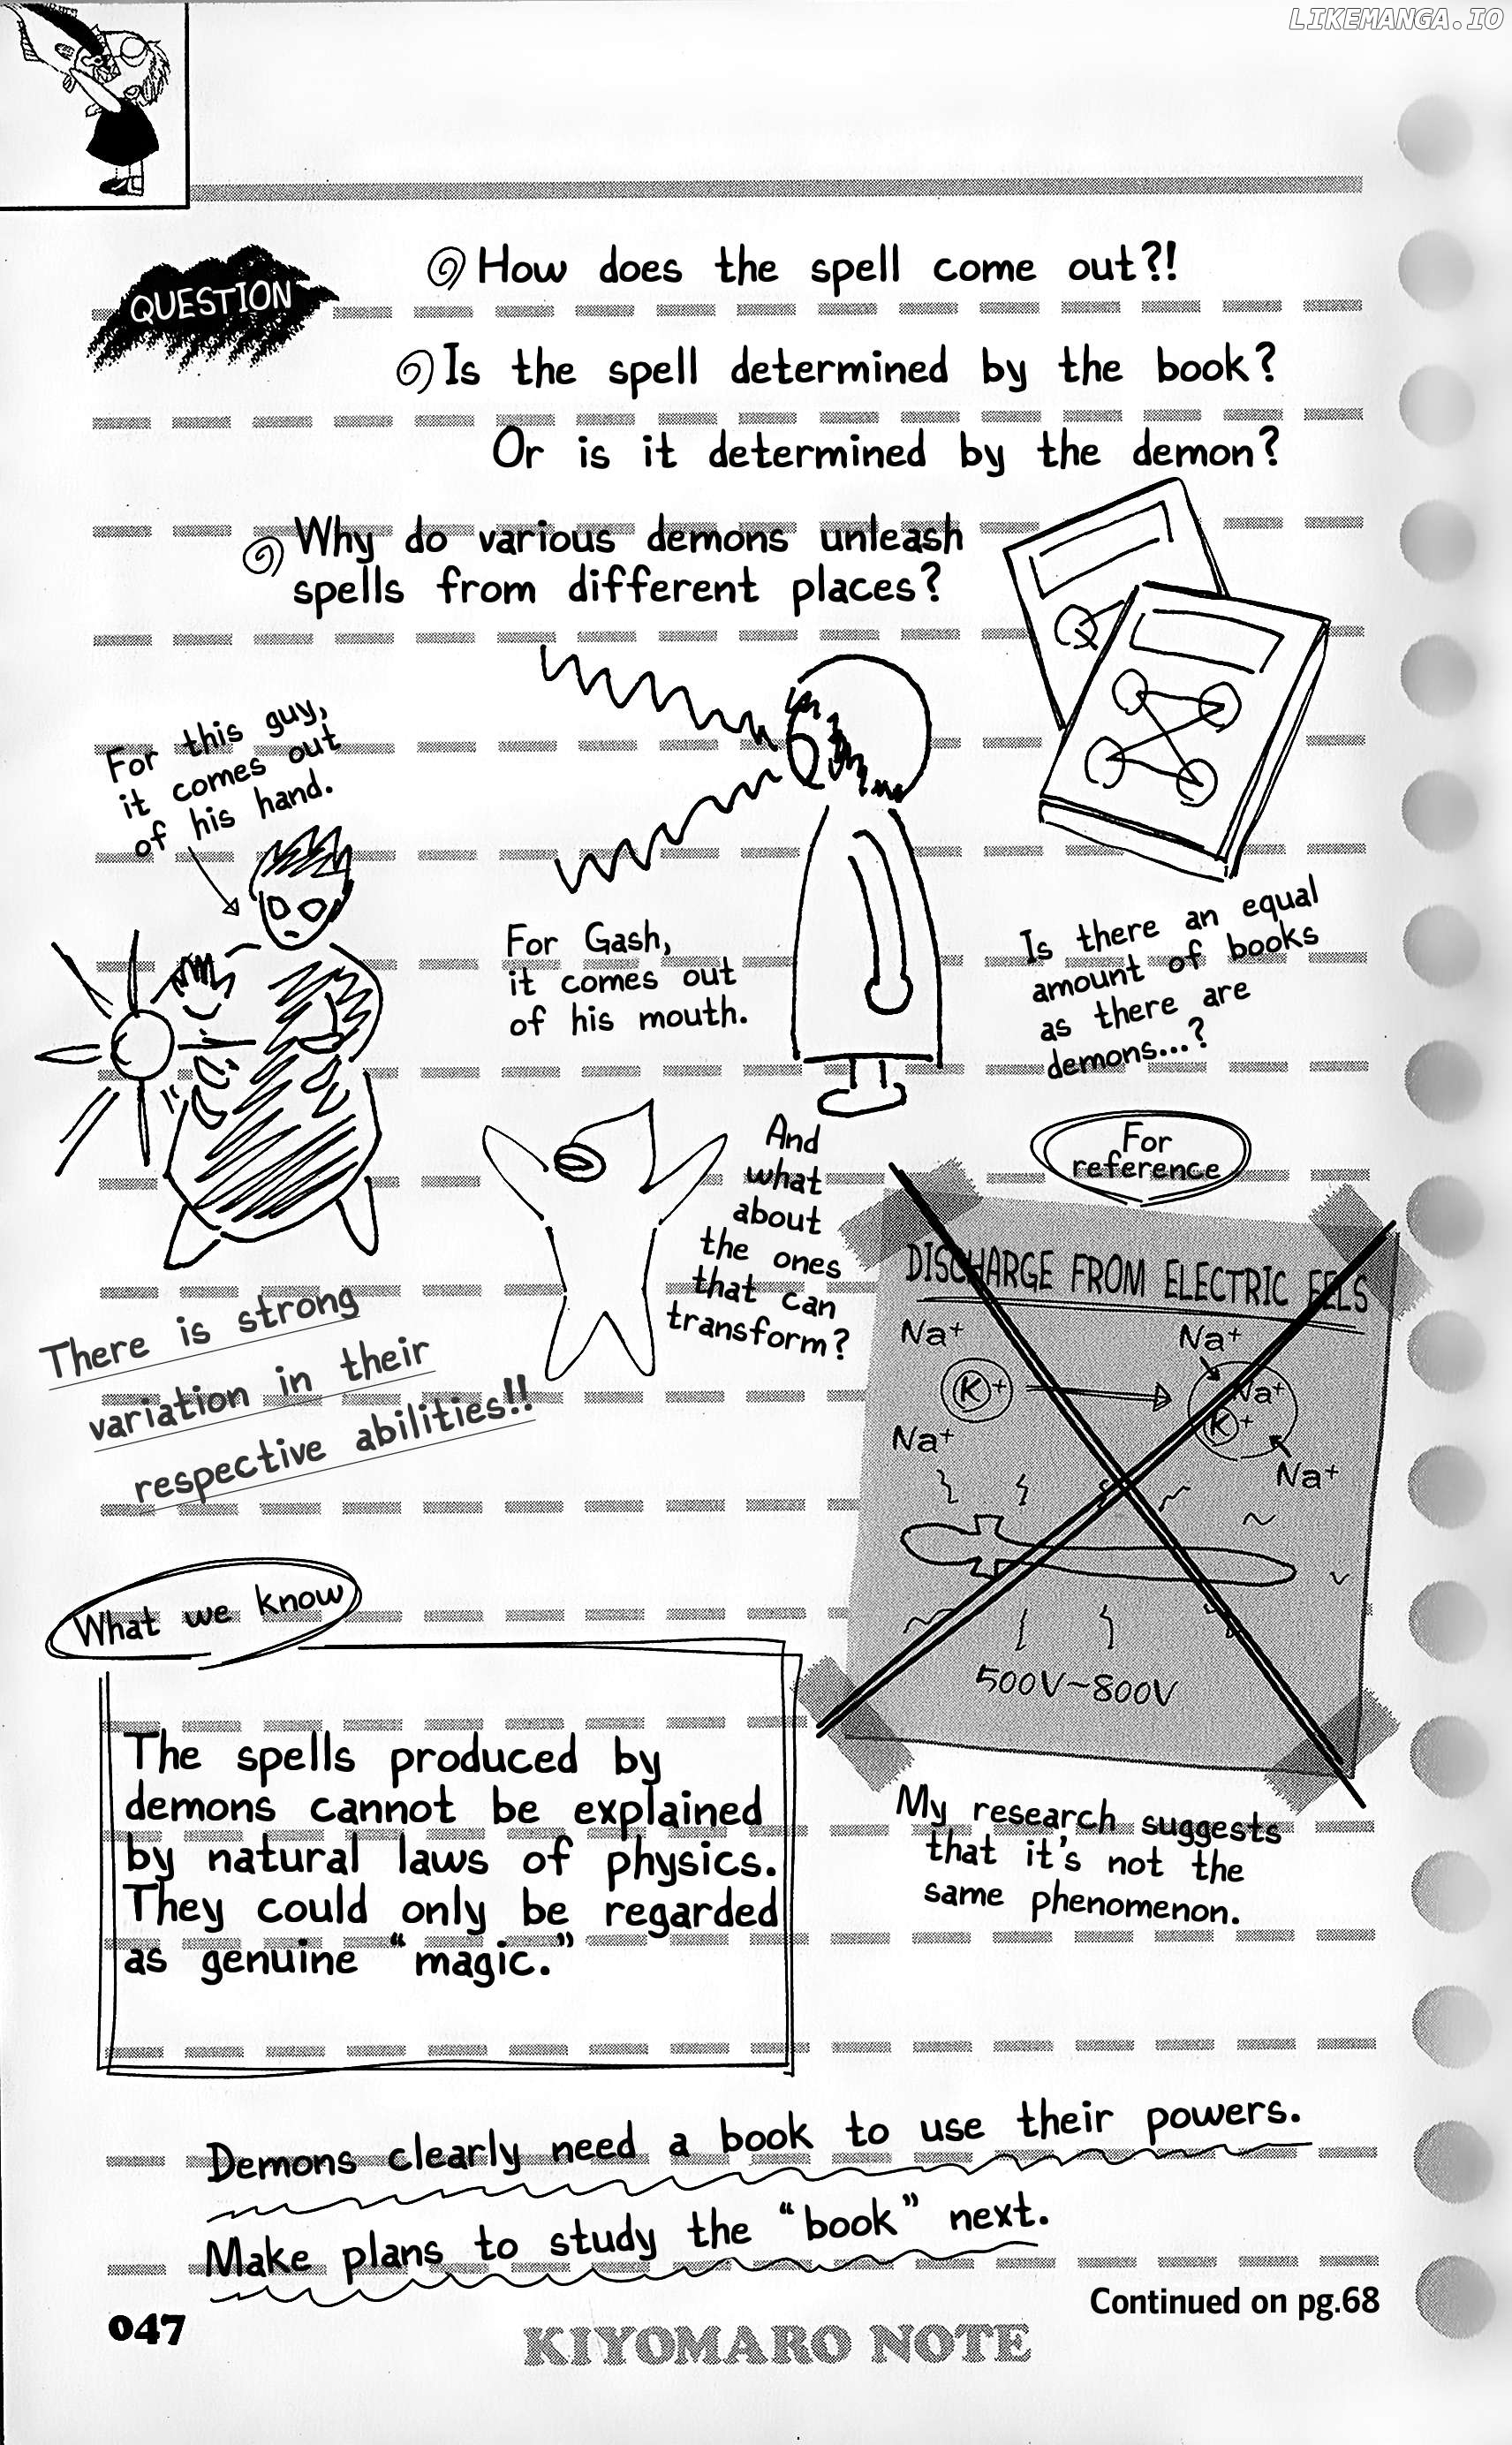 LIKEMANGA.IO
QUESTION
How does the spell come out?!
Is the spell determined by the book?
Or is it determined by the demon?
Why do various demons unleash
spells from different places?
For this guy,
it comes out
of his hand.
For Gash,
it comes out
of his mouth.
Is there an equal
amount of books
as there are
demons...?
And
what
about
the ones
that can
transform?
There is strong
variation in their
respective abilities!!
For
reference
DISCHARGE FROM ELECTRIC EELS
Na+ Na+
K+ Na+
K+
Na+ Na+
500V~800V
My research suggests
that it's not the
same phenomenon.
What we know
The spells produced by
demons cannot be explained
by natural laws of physics.
They could only be regarded
as genuine "magic."
Demons clearly need a book to use their powers.
Make plans to study the "book" next.
Continued on pg.68
047
KIYOMARO NOTE